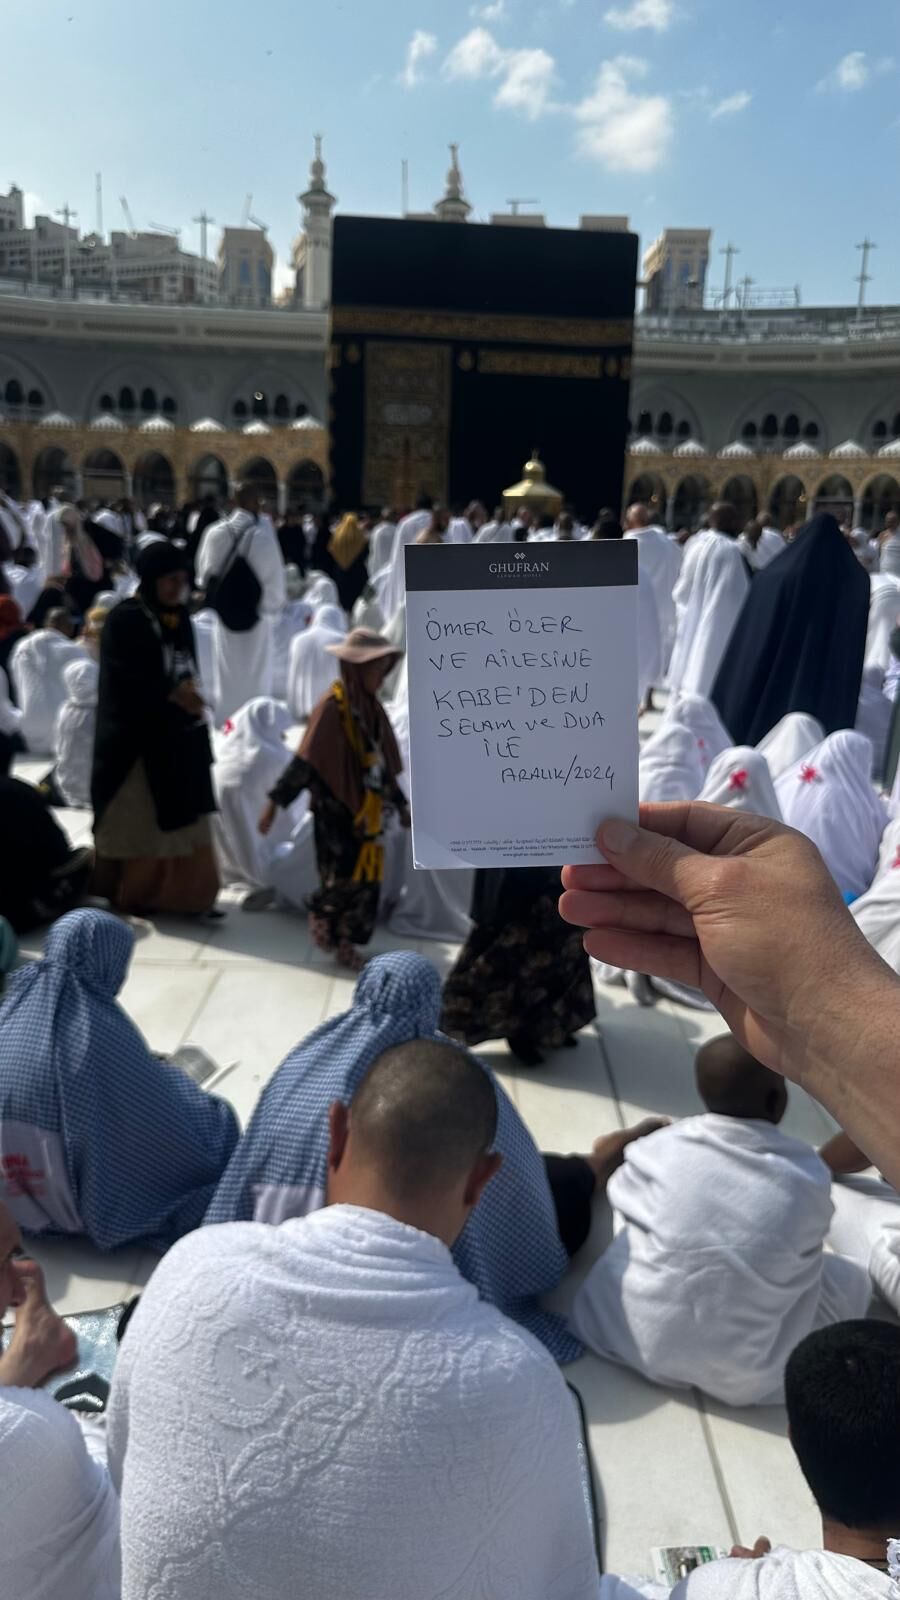 GHUFRAN
SAFWAH HOTEL
ÖMER ÖZER
VE AİLESİNE
KABE'DEN
SELAM ve DUA
İLE
ARALIK/2024
www.ghufran-makkah.com